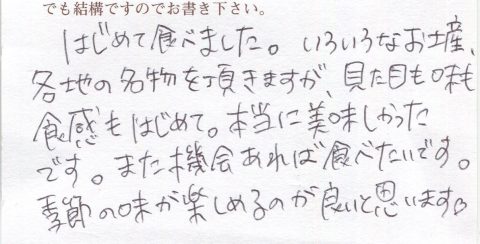 でも結構ですのでお書き下さい。
はじめて食べました。いろいろなお土産、
各地の名物を頂きますが、見た目も味も
食感もはじめて。本当に美味しかった
です。また機会あれば食べたいです。
季節の味が楽しめるのが良いと思います。